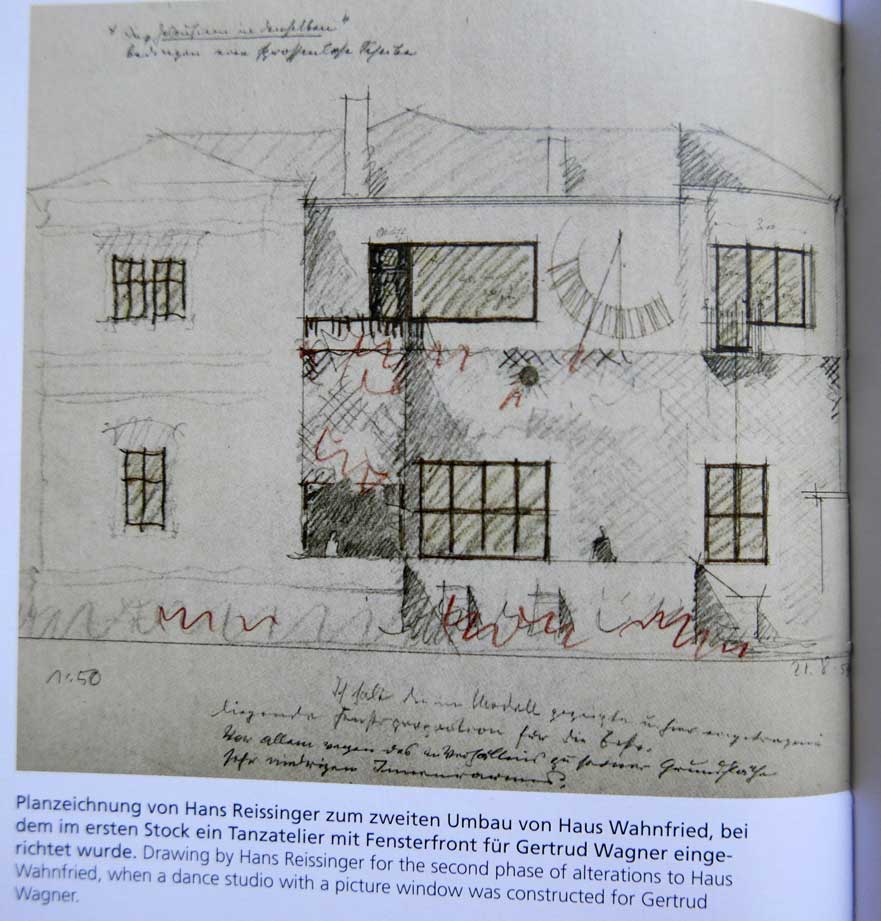 bedingen eine sprossenlose Scheibe
1:50
21. 8.
Ich halte die im Modell gezeigte u. hier eingetragene
liegende Fensterproportion für die beste.
Vor allem wegen des Verhältnis zu seiner Grundfläche
sehr niedrigen Innenraumes.
Planzeichnung von Hans Reissinger zum zweiten Umbau von Haus Wahnfried, bei
dem im ersten Stock ein Tanzatelier mit Fensterfront für Gertrud Wagner einge-
richtet wurde. Drawing by Hans Reissinger for the second phase of alterations to Haus
Wahnfried, when a dance studio with a picture window was constructed for Gertrud
Wagner.